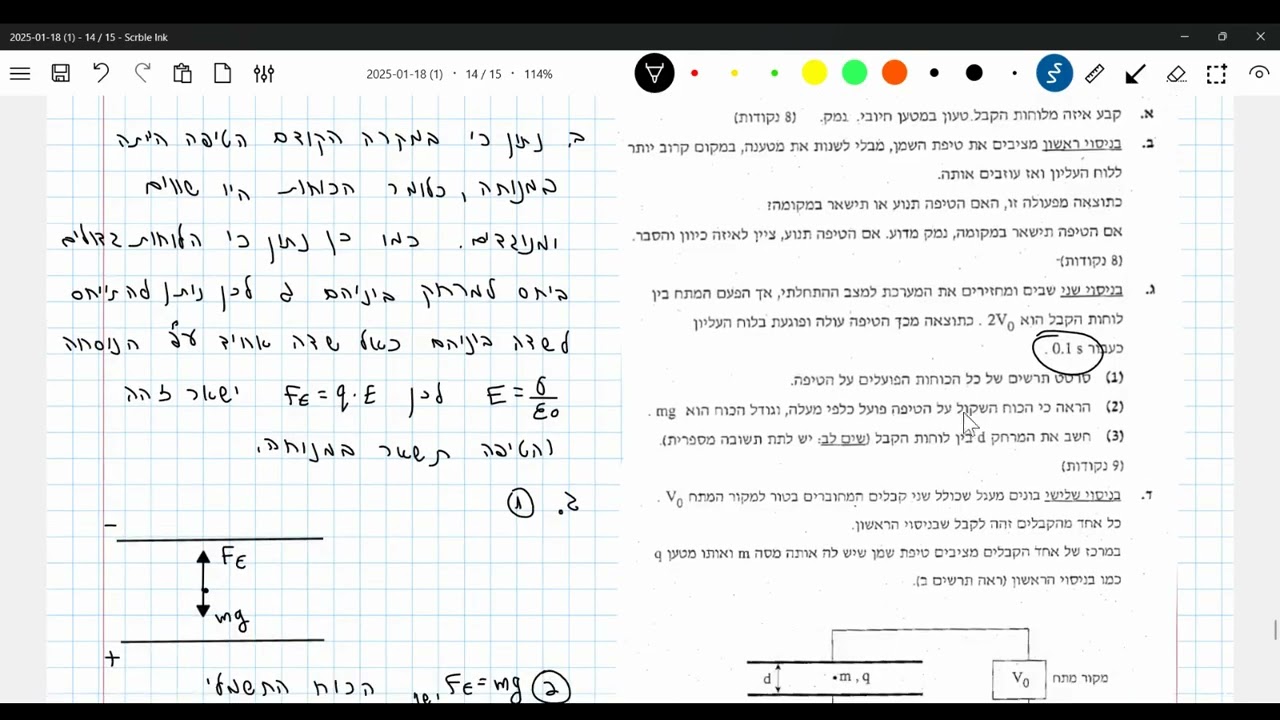 2025-01-18 (1) - 14 / 15 - Scrble Ink
2025-01-18 (1) • 14 / 15 • 114%
א. קבע איזה מלוחות הקבל טעון במטען חיובי. נמק. (8 נקודות)
ב. בניסוי ראשון מציבים את טיפת השמן, מבלי לשנות את מטענה, במקום קרוב יותר
ללוח העליון ואז עוזבים אותה.
כתוצאה מפעולה זו, האם הטיפה תנוע או תישאר במקומה?
אם הטיפה תישאר במקומה, נמק מדוע. אם הטיפה תנוע, ציין לאיזה כיוון והסבר.
(8 נקודות)
ג. בניסוי שני שבים ומחזירים את המערכת למצב ההתחלתי, אך הפעם המתח בין
לוחות הקבל הוא 2V₀ . כתוצאה מכך הטיפה עולה ופוגעת בלוח העליון
כעבור 0.1 s .
(1) סרטט תרשים של כל הכוחות הפועלים על הטיפה.
(2) הראה כי הכוח השקול על הטיפה פועל כלפי מעלה, וגודל הכוח הוא mg .
(3) חשב את המרחק d בין לוחות הקבל (שים לב: יש לתת תשובה מספרית).
(9 נקודות)
ד. בניסוי שלישי בונים מעגל שכולל שני קבלים המחוברים בטור למקור המתח V₀ .
כל אחד מהקבלים זהה לקבל שבניסוי הראשון.
במרכז של אחד הקבלים מציבים טיפת שמן שיש לה אותה מסה m ואותו מטען q
כמו בניסוי הראשון (ראה תרשים ב).
d
•m , q
V₀
מקור מתח
ב. נתון כי במקרה הקודם הטיפה היתה
במנוחה, כלומר הכוחות היו שווים
ומנוגדים. כמו כן נתון כי הלוחות גדולים
ביחס למרחק ביניהם ולכן ניתן להתייחס
לשדה ביניהם כאל שדה אחיד ע"פ הנוסחה
E = σ/ε₀ לכן F_E = q·E ישאר זהה
והטיפה תשאר במנוחה.
ג. (1)
-
F_E
mg
+
(2) F_E = mg הכוח החשמלי